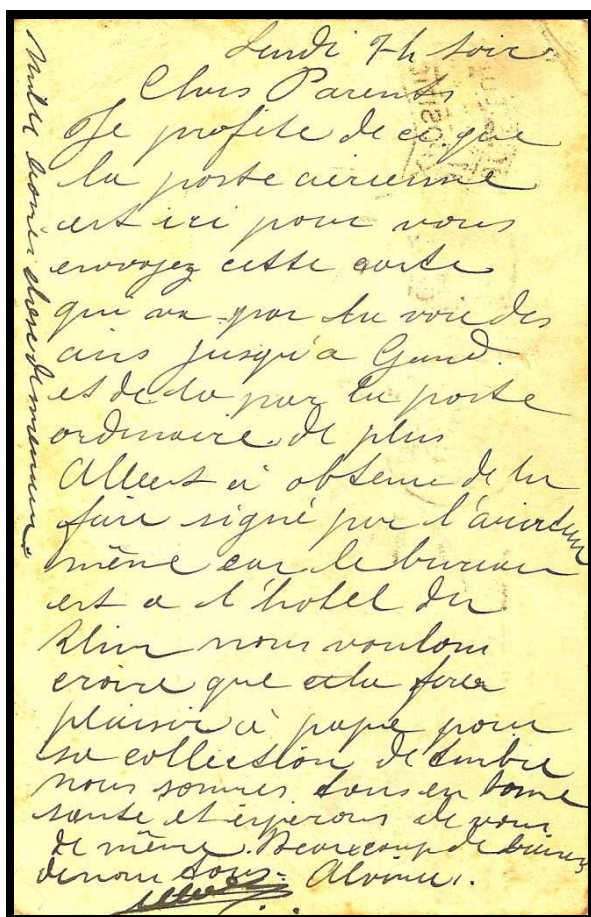 Lundi 7h soir
Chers Parents
Je profite de ce que
la poste aérienne
est ici pour vous
envoyez cette carte
qui va par la voie des
airs jusqu'a Gand.
et de la par la poste
ordinaire de plus
Albert à obtenu de la
faire signé par l'aviateur
même car le bureau
est a l'hotel du
Rhin nous voulons
croire que cela fera
plaisir à papa pour
sa collection de timbre
nous sommes tous en bonne
sante et esperons de vous
de même. Beaucoup de baisers
de nous tous. Alvine.
Mille bonne chose de memer.